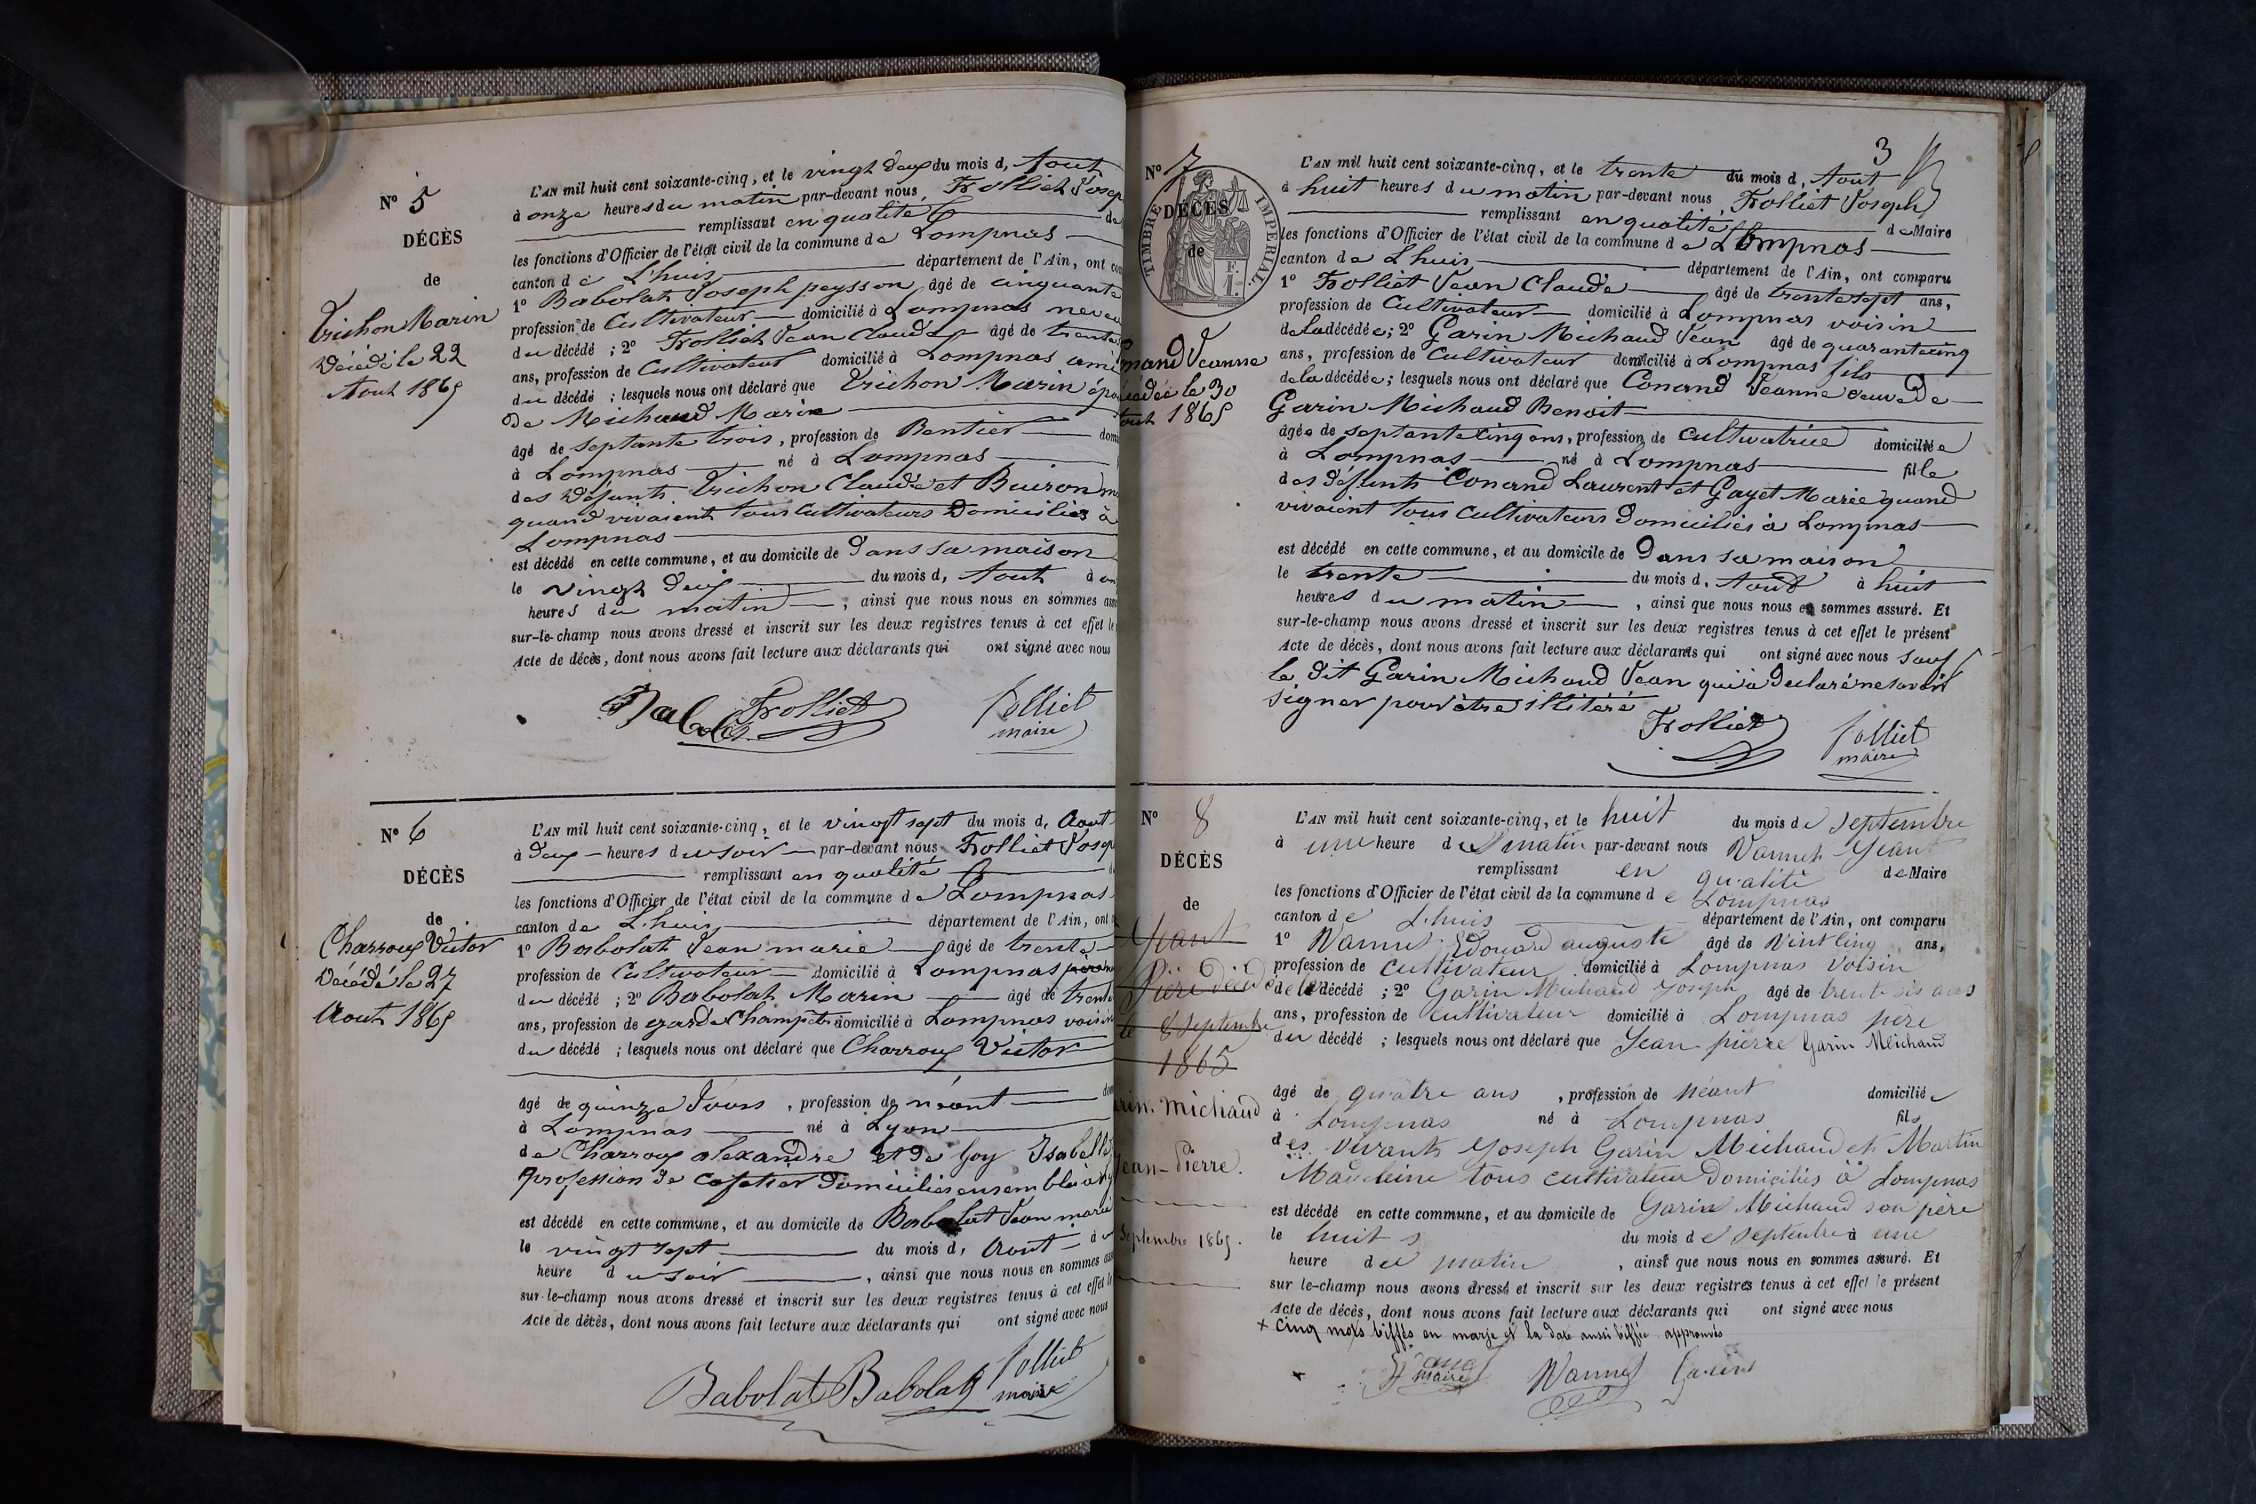 N° 5
DÉCÈS
de
Trichon Marin
Décédé le 22
Aout 1865
L'AN mil huit cent soixante-cinq, et le vingt deux du mois d, Aout
à onze heures du matin par-devant nous Frolliet Josep
remplissant en qualité de
les fonctions d'Officier de l'état civil de la commune de Lompnas
canton de L'huis département de l'Ain, ont co
1° Babolat Joseph peysson âgé de cinquante
profession de Cultivateur domicilié à Lompnas neveu
du décédé ; 2° Frolliet Jean Claude âgé de trente
ans, profession de Cultivateur domicilié à Lompnas ami
du décédé ; lesquels nous ont déclaré que Trichon Marin épou
De Michaud Marie
âgé de septante trois, profession de Rentier dom
à Lompnas né à Lompnas
des Défunts Trichon Claude et Buiron
quand vivaient tous Cultivateurs Domiciliés à
Lompnas
est décédé en cette commune, et au domicile de Dans sa maison
le vingt deux du mois d, Aout à on
heures du matin, ainsi que nous nous en sommes assu
sur-le-champ nous avons dressé et inscrit sur les deux registres tenus à cet effet le
Acte de décès, dont nous avons fait lecture aux déclarants qui ont signé avec nous
Babolat Frolliet Folliet
maire
N° 6
DÉCÈS
de
Charroux Victor
Décédé le 27
Aout 1865
L'AN mil huit cent soixante-cinq, et le vingt sept du mois d, Aout
à deux heures du soir par-devant nous Frolliet Josep
remplissant en qualité
les fonctions d'Officier de l'état civil de la commune de Lompnas
canton de L'huis département de l'Ain, ont
1° Babolat Jean marie âgé de trente
profession de Cultivateur domicilié à Lompnas
du décédé ; 2° Babolat Marin âgé de trente
ans, profession de garde Champêtre domicilié à Lompnas voisin
du décédé ; lesquels nous ont déclaré que Charroux Victor
âgé de quinze Jours, profession de néant dom
à Lompnas né à Lyon
de Charroux alexandre et de Goy Isabelle
profession de cafetier Domiciliés ensemble à
est décédé en cette commune, et au domicile de Babolat Jean marie
le vingt sept du mois d, Aout à
heure du soir, ainsi que nous nous en sommes ass
sur-le-champ nous avons dressé et inscrit sur les deux registres tenus à cet effet le
Acte de décès, dont nous avons fait lecture aux déclarants qui ont signé avec nous
Babolat Babolat Folliet
maire
3
N° 7
DÉCÈS
de
TIMBRE IMPÉRIAL
onand Jeanne
écédée le 30
out 1865
L'AN mil huit cent soixante-cinq, et le trente du mois d, Aout
à huit heures du matin par-devant nous Frolliet Joseph
remplissant en qualité de Maire
les fonctions d'Officier de l'état civil de la commune de Lompnas
canton de Lhuis département de l'Ain, ont comparu
1° Frolliet Jean Claude âgé de trente sept ans,
profession de Cultivateur domicilié à Lompnas voisin
de la décédée ; 2° Garin Michaud Jean âgé de quarante cinq
ans, profession de Cultivateur domicilié à Lompnas fils
de la décédée ; lesquels nous ont déclaré que Conand Jeanne veuve De
Garin Michaud Benoit
âgée de septante cinq ans, profession de cultivatrice domiciliée
à Lompnas né à Lompnas fille
des défunts Conand Laurent et Gayet Marie quand
vivaient tous Cultivateurs Domiciliés à Lompnas
est décédé en cette commune, et au domicile de Dans sa maison
le trente du mois d, Aout à huit
heures du matin, ainsi que nous nous en sommes assuré. Et
sur-le-champ nous avons dressé et inscrit sur les deux registres tenus à cet effet le présent
Acte de décès, dont nous avons fait lecture aux déclarants qui ont signé avec nous sauf
le Dit Garin Michaud Jean qui a Déclaré ne savoir
signer pour être illitéré
Frolliet Folliet
maire
N° 8
DÉCÈS
de
Jeant
Piere décédé
le 8 septembre
1865
rin. Michaud
Jean-Pierre.
Septembre 1865.
L'AN mil huit cent soixante-cinq, et le huit du mois de septembre
à une heure du matin par-devant nous Vannet
remplissant en qualité de Maire
les fonctions d'Officier de l'état civil de la commune de Lompnas
canton de Lhuis département de l'Ain, ont comparu
1° Vannet Edouard auguste âgé de vint cinq ans,
profession de cultivateur domicilié à Lompnas voisin
de le décédé ; 2° Garin Michaud Joseph âgé de trente sis ans
ans, profession de cultivateur domicilié à Lompnas pere
du décédé ; lesquels nous ont déclaré que Jean pierre Garin Michaud
âgé de quatre ans, profession de néant domicilié
à Lompnas né à Lompnas fils
des vivants Joseph Garin Michaud et Martin
Madeleine tous cultivateur Domiciliés à Lompnas
est décédé en cette commune, et au domicile de Garin Michaud son père
le huit du mois de septembre à une
heure du matin, ainsi que nous nous en sommes assuré. Et
sur le-champ nous avons dressé et inscrit sur les deux registres tenus à cet effet le présent
Acte de décès, dont nous avons fait lecture aux déclarants qui ont signé avec nous
+ cinq mots biffés en marge et la date aussi biffée approuvés
maire Vannet Garin